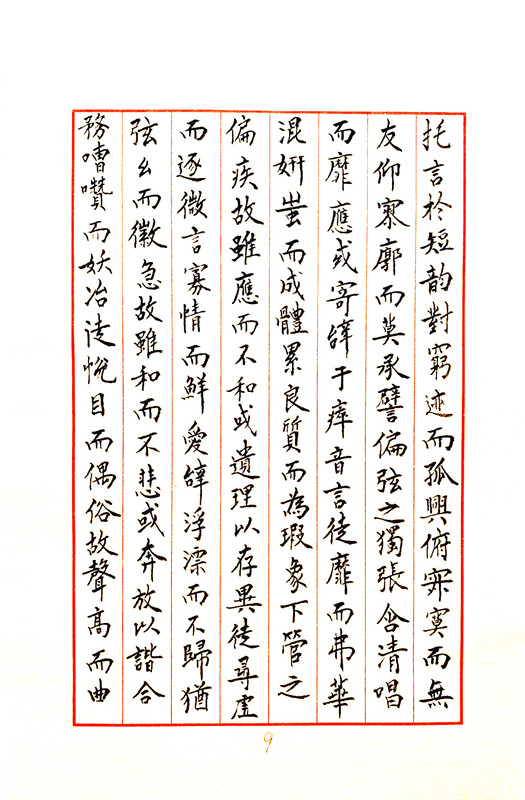 托言於短韵對窮迹而孤興俯寂寞而無
友仰寥廓而莫承譬偏弦之獨張含清唱
而靡應或寄辝于瘁音言徒靡而弗華
混妍蚩而成體累良質而為瑕象下管之
偏疾故雖應而不和或遺理以存異徒尋虛
而逐微言寡情而鮮愛辝浮漂而不歸猶
弦幺而徽急故雖和而不悲或奔放以諧合
務嘈囋而妖冶徒悅目而偶俗故聲高而曲
9